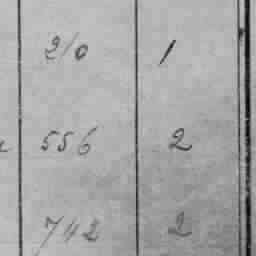 210 1
556 2
742 2